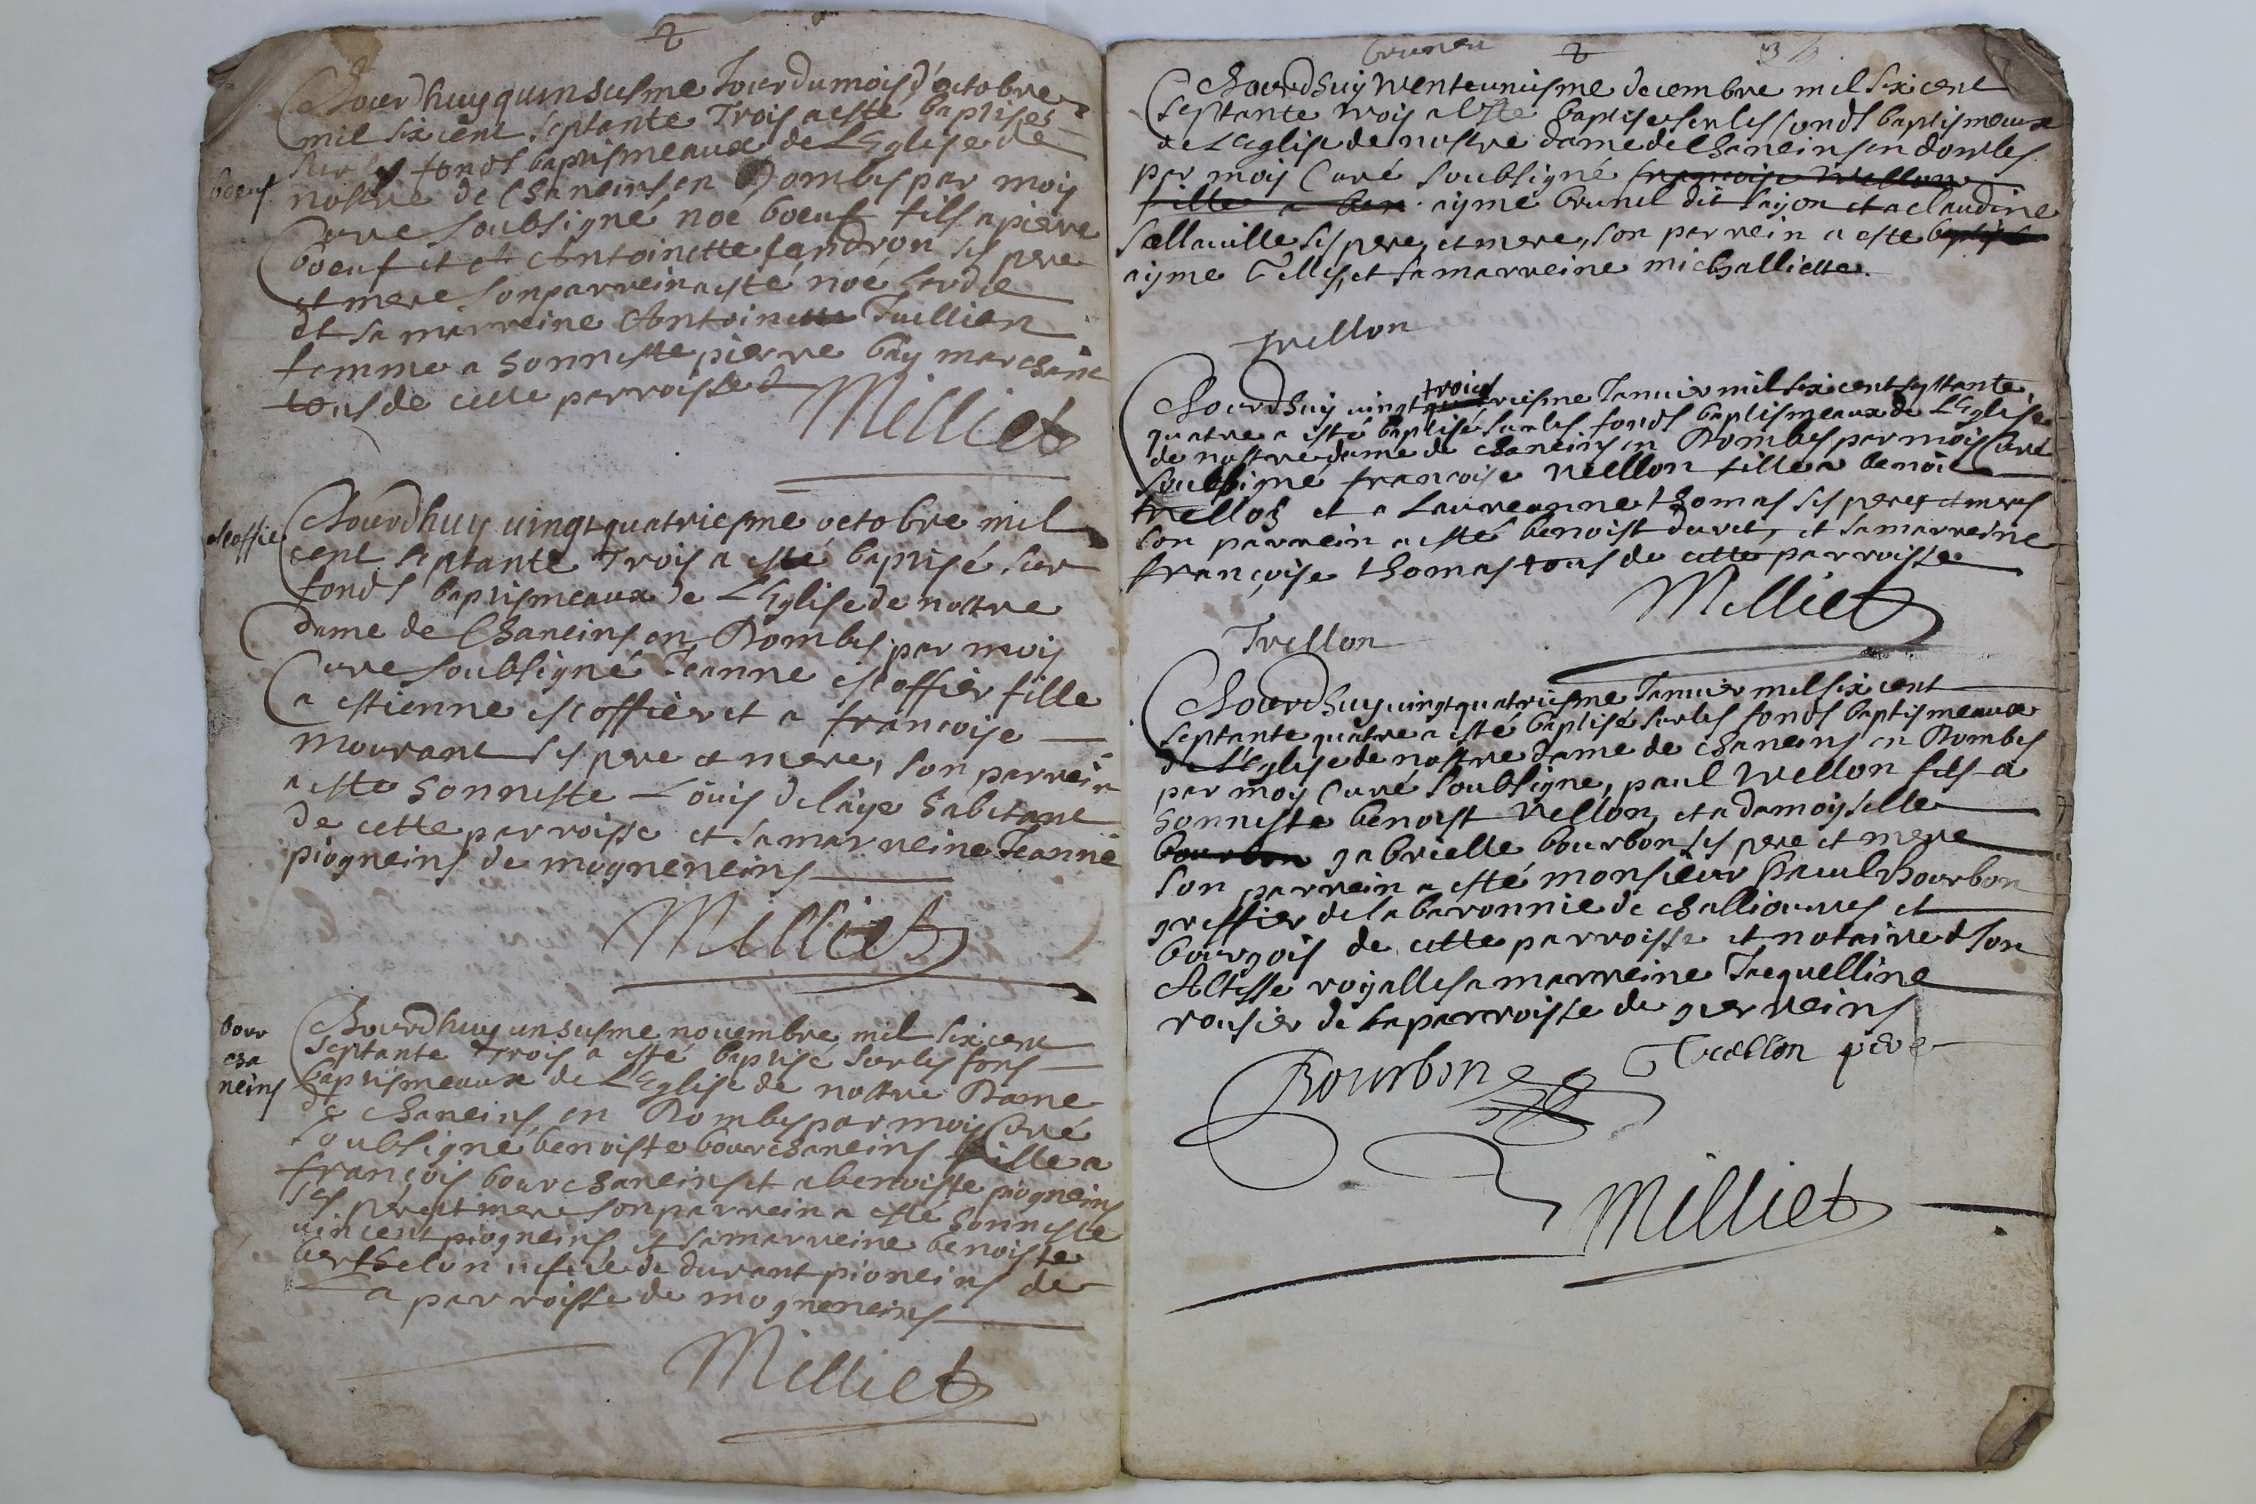 2
Cejourdhuy quinsiesme Jour du mois d'octobre
mil six cent septante Trois a esté baptisez
sur les fonds baptismeaux de L'Eglise de
boeuf
nostre de Chaneins en Dombes par moy
Curé soubsigné noé boeuf fils a pierre
boeuf et a Antoinette Jandron ses pere
et mere son parrein a esté noé
et sa marreine Antoinette Juillien
femme a honneste pierre bay marchant
tous de cette parroisse
Milliet
escoffier
Cejourdhuy vingt quatriesme octobre mil
cent septante Trois a esté baptisé sur
fonds baptismeaux de L'Eglise de nostre
dame de Chaneins en Dombes par moy
Curé soubsigné Jeanne escoffier fille
a estienne escoffier et a françoise
mourant ses pere et mere, son parrein
a esté honneste Loüis delaye habitant
de cette parroisse et sa marreine Jeanne
piogneins de mogneneins
Milliet
bour
cha
neins
Cejourdhuy unsiesme novembre mil six cent
septante Trois a esté baptisé sur les fons
baptismeaux de L'Eglise de nostre Dame
de Chaneins en Dombes par moy Curé
soubsigné benoiste bourchaneins fille a
françois bourchaneins et a benoiste piogneins
ses pere et mere son parrein a esté honneste
vincent piogneins et sa marreine benoiste
berthelon de durant pioneins de
la parroisse de mogneneins
Milliet
brunel
2
3
Cejourdhuy trente uniesme decembre mil six cent
septante trois a esté baptisé sur les fonds baptismeaux
de L'Eglise de nostre dame de Chaneins en dombes
par moy Curé soubsigné françoise trellon
fille a ben ayme brunel dit Layon et a claudine
sallaville ses pere, et mere, son parrein a esté baptisé
ayme Tellis, et sa marreine michalliette.
Trellon
Cejourdhuy vingt troies quatriesme Janvier mil six cent septante
quatre a esté baptisé sur les fonds baptismeaux de L'Eglise
de nostre dame de chaneins en Dombes par moy Curé
soubsigné françoise trellon fille a benoist
trellon et a Laureanne thomas ses peres et meres
son parrein a esté benoist duret, et sa marreine
françoise thomas tous de cette parroisse
Milliet
Trellon
Cejourdhuy vingt quatriesme Janvier mil six cent
septante quatre a esté baptisé sur les fonds baptismeaux
de L'Eglise de nostre dame de chaneins en Dombes
par moy Curé soubsigne, paul trellon fils a
honneste benoist trellon, et a damoyselle
bourbon gabrielle bourbon ses pere et mere
son parrein a esté monsieur paul bourbon
greffier de la baronnie de challiouvres et
bourgois de cette parroisse et notaire d son
Altesse royalle sa marreine Jacquelline
rousier de la parroisse de guerreins
Bourbon
Trellon pere
Milliet